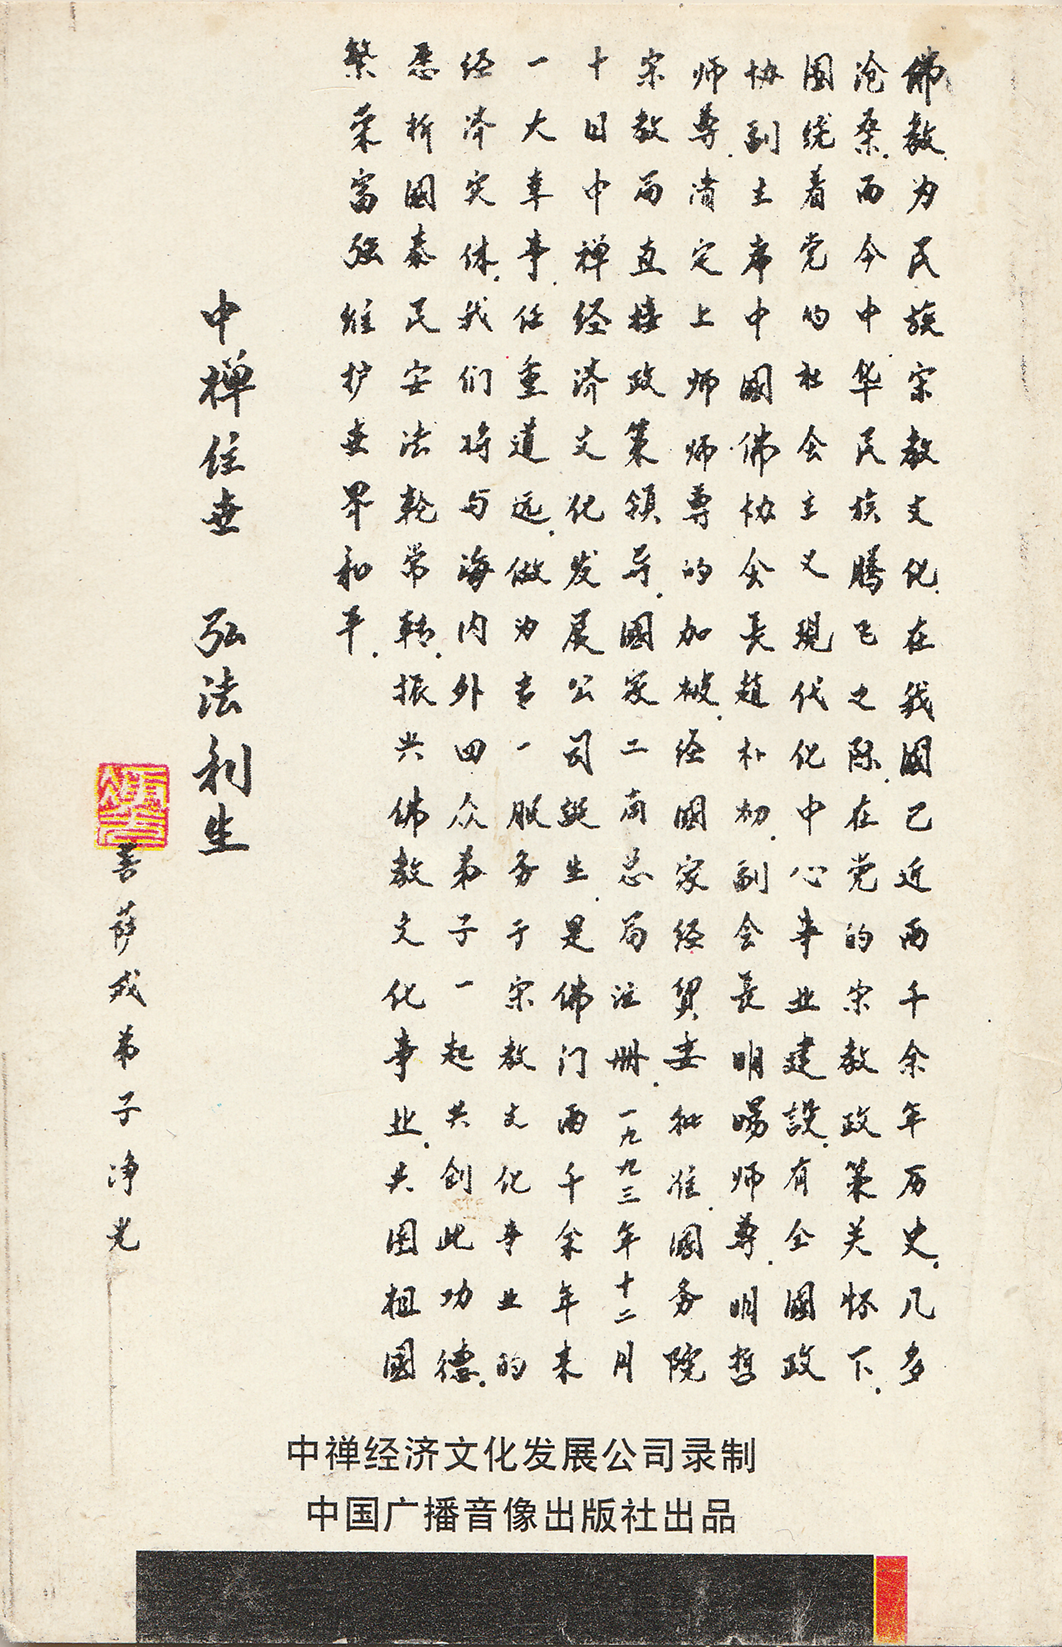 佛教.为民族宗教文化.在我國已近两千余年历史.几多
沧桑.而今中华民族腾飞之际.在党的宗教政策关怀下.
围绕着党的社会主义現代化中心事业建設.有全國政
协副主席中國佛协会長趙朴初.副会長明暘师尊.明哲
师尊.清定上师师尊的加被.经國家经貿委批准.國务院
宗教局直接政策领导.國家二商总局注册.一九九三年十二月
十日中禅经济文化发展公司诞生.是佛门两千余年来
一大幸事.任重道远.做为专一服务于宗教文化事业的
经济实体.我们将与海内外四众弟子一起共创此功德.
悉祈國泰民安法轮常転.振兴佛教文化事业.共図祖國
繁荣富强维护世界和平.
中禅住世 弘法利生
菩萨戒弟子净光
中禅经济文化发展公司录制
中国广播音像出版社出品